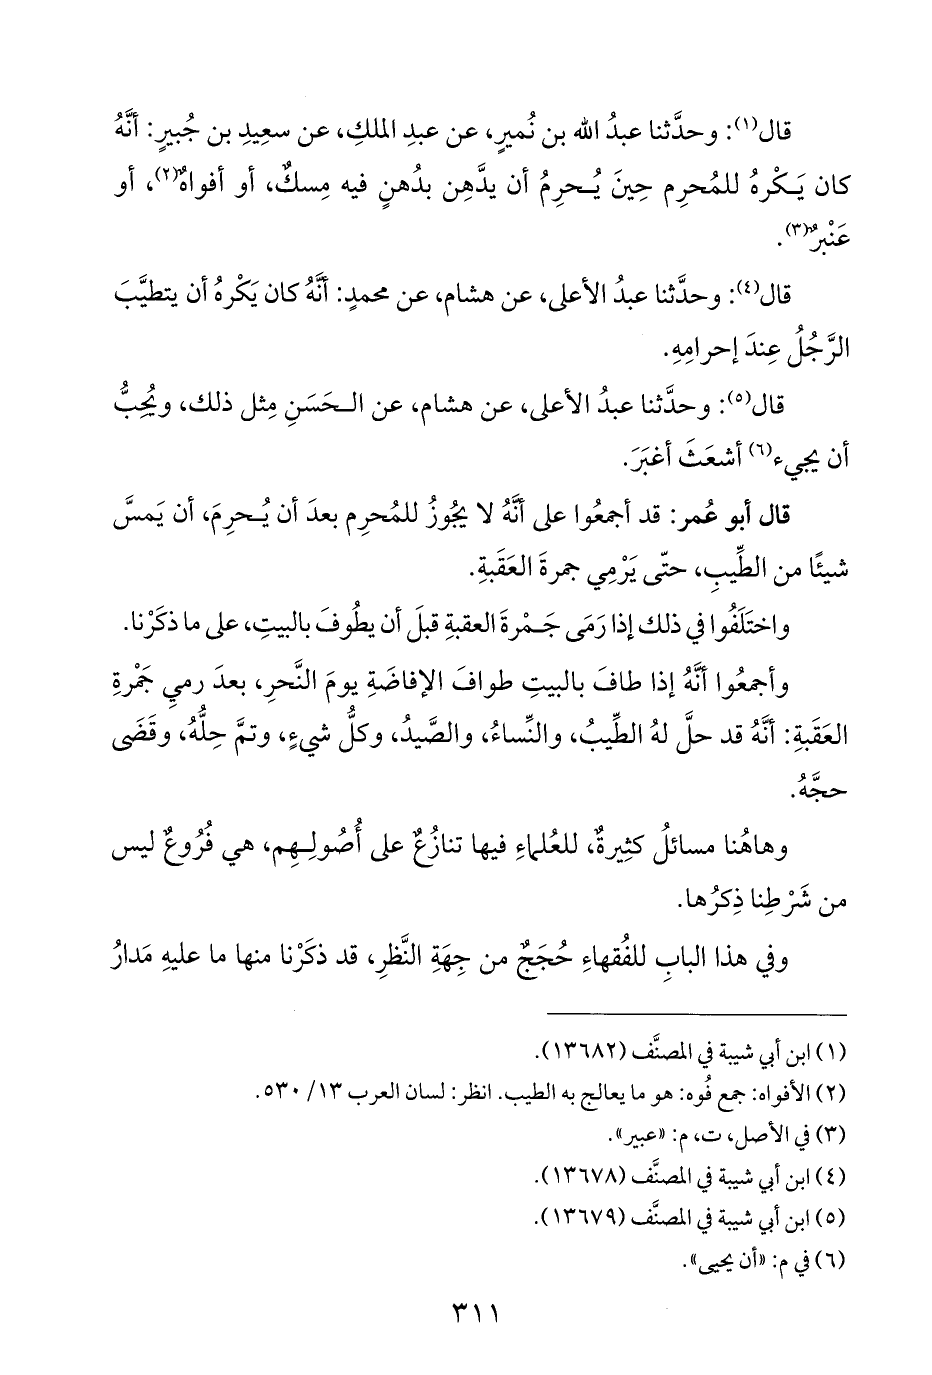 قال(١): وحدَّثنا عبدُ الله بن نُميرٍ، عن عبدِ الملكِ، عن سعيدِ بن جُبيرٍ: أنَّهُ
كان يَكْرهُ للمُحرِم حِينَ يُحرِمُ أن يدَّهِن بدُهنٍ فيه مِسكٌ، أو أفواهٌ(٢)، أو
عَنْبرٌ(٣).
قال(٤): وحدَّثنا عبدُ الأعلى، عن هشام، عن محمدٍ: أنَّهُ كان يَكْرهُ أن يتطيَّبَ
الرَّجُلُ عِندَ إحرامِهِ.
قال(٥): وحدَّثنا عبدُ الأعلى، عن هشام، عن الحَسَنِ مِثل ذلك، ويُحِبُّ
أن يجيء(٦) أشعَثَ أغبَرَ.
قال أبو عُمر: قد أجمعُوا على أنَّهُ لا يجُوزُ للمُحرِم بعدَ أن يُحرِمَ، أن يَمسَّ
شيئًا من الطِّيبِ، حتّى يَرْمِي جمرةَ العَقَبةِ.
واختَلَفُوا في ذلك إذا رَمَى جَمْرةَ العقبةِ قبلَ أن يطُوفَ بالبيتِ، على ما ذكَرْنا.
وأجمعُوا أنَّهُ إذا طافَ بالبيتِ طوافَ الإفاضَةِ يومَ النَّحرِ، بعدَ رميِ جَمْرةِ
العَقَبةِ: أنَّهُ قد حلَّ لهُ الطِّيبُ، والنِّساءُ، والصَّيدُ، وكلُّ شيءٍ، وتمَّ حِلُّهُ، وقَضَى
حجَّهُ.
وهاهُنا مسائلُ كثِيرةٌ، للعُلماءِ فيها تنازُعٌ على أُصُولِهِم، هي فُرُوعٌ ليس
من شَرْطِنا ذِكرُها.
وفي هذا البابِ للفُقهاءِ حُجَجٌ من جِهَةِ النَّظرِ، قد ذكَرْنا منها ما عليهِ مَدارُ
(١) ابن أبي شيبة في المصنَّف (١٣٦٨٢).
(٢) الأفواه: جمع فُوه: هو ما يعالج به الطيب. انظر: لسان العرب ١٣/ ٥٣٠.
(٣) في الأصل، ت، م: «عبير».
(٤) ابن أبي شيبة في المصنَّف (١٣٦٧٨).
(٥) ابن أبي شيبة في المصنَّف (١٣٦٧٩).
(٦) في م: «أن يحيى».
٣١١